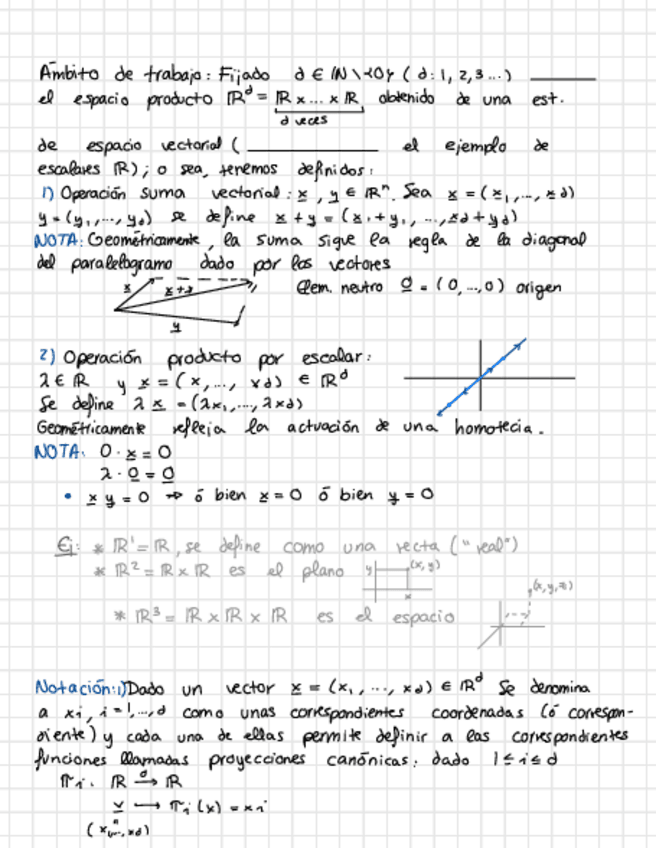 Ámbito de trabajo: Fijado d ∈ ℕ \ {0} ( d: 1, 2, 3 ...) ______
el espacio producto ℝᵈ = ℝ x ... x ℝ obtenido de una est.
d veces
de espacio vectorial ( ____________ el ejemplo de
escalares ℝ); o sea, tenemos definidos:
1) Operación suma vectorial : x, y ∈ ℝⁿ. Sea x = (x₁, ..., xd)
y = (y₁, ..., yd) se define x + y = (x₁ + y₁, ..., xd + yd)
NOTA: Geométricamente, la suma sigue la regla de la diagonal
del paralelogramo dado por los vectores
x x+y Elem. neutro 0 = (0, ..., 0) origen
y
2) Operación producto por escalar:
λ ∈ ℝ y x = (x, ..., xd) ∈ ℝᵈ
Se define λ x = (λx₁, ..., λxd)
Geométricamente refleja la actuación de una homotecia.
NOTA: 0 · x = 0
λ · 0 = 0
• x y = 0 ⇒ ó bien x = 0 ó bien y = 0
Ej: * ℝ¹ = ℝ, se define como una recta ("real")
* ℝ² = ℝ x ℝ es el plano y (x, y)
x
* ℝ³ = ℝ x ℝ x ℝ es el espacio (x, y, z)
Notación: 1) Dado un vector x = (x₁, ..., xd) ∈ ℝᵈ Se denomina
a xi, i = 1, ..., d como unas correspondientes coordenadas (ó correspon-
diente) y cada una de ellas permite definir a las correspondientes
funciones llamadas proyecciones canónicas: dado 1 ≤ i ≤ d
πi. ℝᵈ → ℝ
x → πi (x) = xi
(x₁, ..., xd)